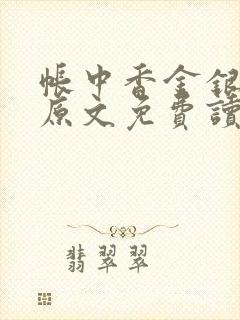 帳中香金銀
原文免費讀
翡翠翠